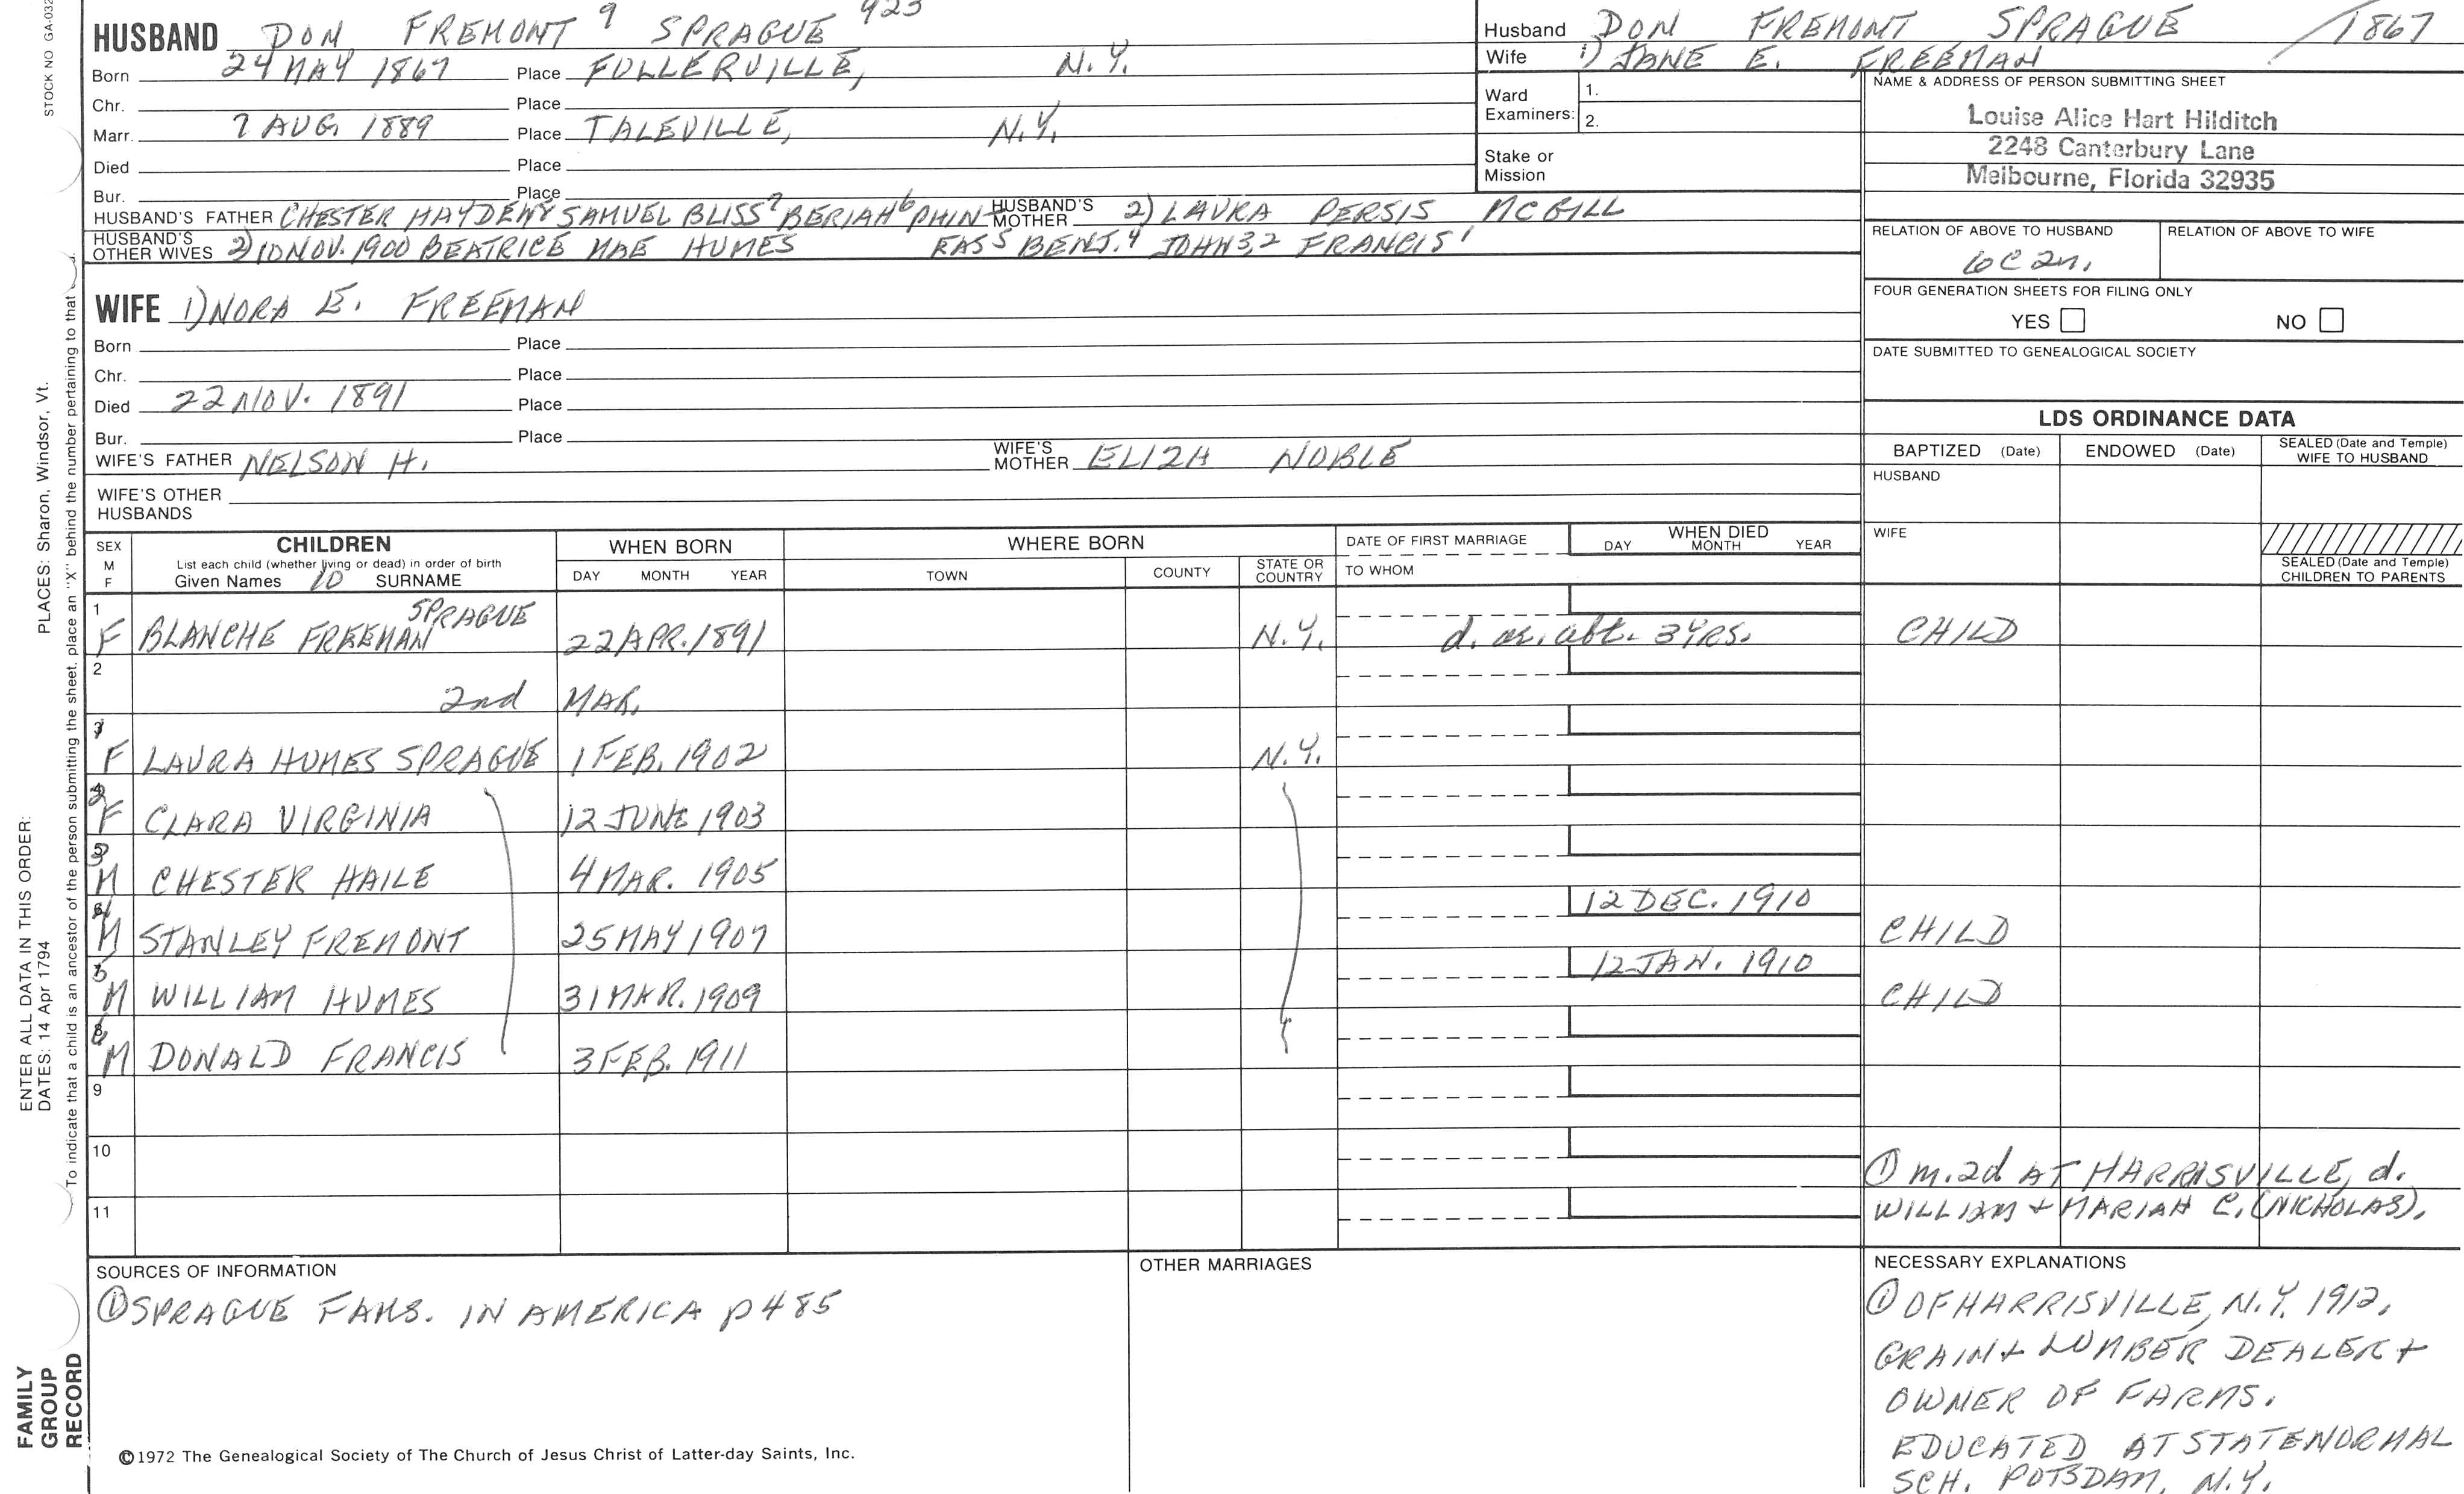 HUSBAND DON FREMONT 9 SPRAGUE 923
Born 24 MAY 1867 Place FULLERVILLE, N.Y.
Chr. Place
Marr. 7 AUG. 1889 Place TALEVILLE, N.Y.
Died Place
Bur. Place
HUSBAND'S FATHER CHESTER HAYDEN SAMUEL BLISS 7 BERIAH 6 PHIN- HUSBAND'S MOTHER 2) LAURA PERSIS MCGILL
HUSBAND'S OTHER WIVES 2) 10 NOV. 1900 BEATRICE MAE HUMES EAS 5 BENJ. 4 JOHN 3,2 FRANCIS 1
WIFE 1) NORA E. FREEMAN
Born Place
Chr. Place
Died 22 NOV. 1891 Place
Bur. Place
WIFE'S FATHER NELSON H. WIFE'S MOTHER ELIZA NOBLE
WIFE'S OTHER HUSBANDS
Husband DON FREMONT SPRAGUE / 1867
Wife 1) JANE E. FREEMAN
Ward Examiners: 1.
2.
Stake or Mission
NAME & ADDRESS OF PERSON SUBMITTING SHEET
Louise Alice Hart Hilditch
2248 Canterbury Lane
Melbourne, Florida 32935
RELATION OF ABOVE TO HUSBAND RELATION OF ABOVE TO WIFE
6C 2r.
FOUR GENERATION SHEETS FOR FILING ONLY
YES NO
DATE SUBMITTED TO GENEALOGICAL SOCIETY
LDS ORDINANCE DATA
BAPTIZED (Date) ENDOWED (Date) SEALED (Date and Temple) WIFE TO HUSBAND
HUSBAND
WIFE
SEALED (Date and Temple) CHILDREN TO PARENTS
SEX M F
CHILDREN
List each child (whether living or dead) in order of birth
Given Names 10 SURNAME
WHEN BORN
DAY MONTH YEAR
WHERE BORN
TOWN COUNTY STATE OR COUNTRY
DATE OF FIRST MARRIAGE
TO WHOM
WHEN DIED
DAY MONTH YEAR
1 F BLANCHE FREEMAN SPRAGUE 22 APR. 1891 N.Y. d. ae. abt. 3 YRS. CHILD
2
2nd MAR.
3 1 F LAURA HUMES SPRAGUE 1 FEB. 1902 N.Y.
4 2 F CLARA VIRGINIA 12 JUNE 1903
5 3 M CHESTER HAILE 4 MAR. 1905
6 4 M STANLEY FREMONT 25 MAY 1907 12 DEC. 1910 CHILD
7 5 M WILLIAM HUMES 31 MAR. 1909 12 JAN. 1910 CHILD
8 6 M DONALD FRANCIS 3 FEB. 1911
9
10
11
① m. 2d AT HARRISVILLE, d.
WILLIAM + MARIAH C. (NICHOLAS).
SOURCES OF INFORMATION
① SPRAGUE FAMS. IN AMERICA p 485
OTHER MARRIAGES
NECESSARY EXPLANATIONS
① OF HARRISVILLE, N.Y. 1912.
GRAIN + LUMBER DEALER +
OWNER OF FARMS.
EDUCATED AT STATE NORMAL
SCH. POTSDAM, N.Y.
©1972 The Genealogical Society of The Church of Jesus Christ of Latter-day Saints, Inc.
STOCK NO GA-032
PLACES: Sharon, Windsor, Vt.
To indicate that a child is an ancestor of the person submitting the sheet, place an "X" behind the number pertaining to that
ENTER ALL DATA IN THIS ORDER:
DATES: 14 Apr 1794
FAMILY
GROUP
RECORD